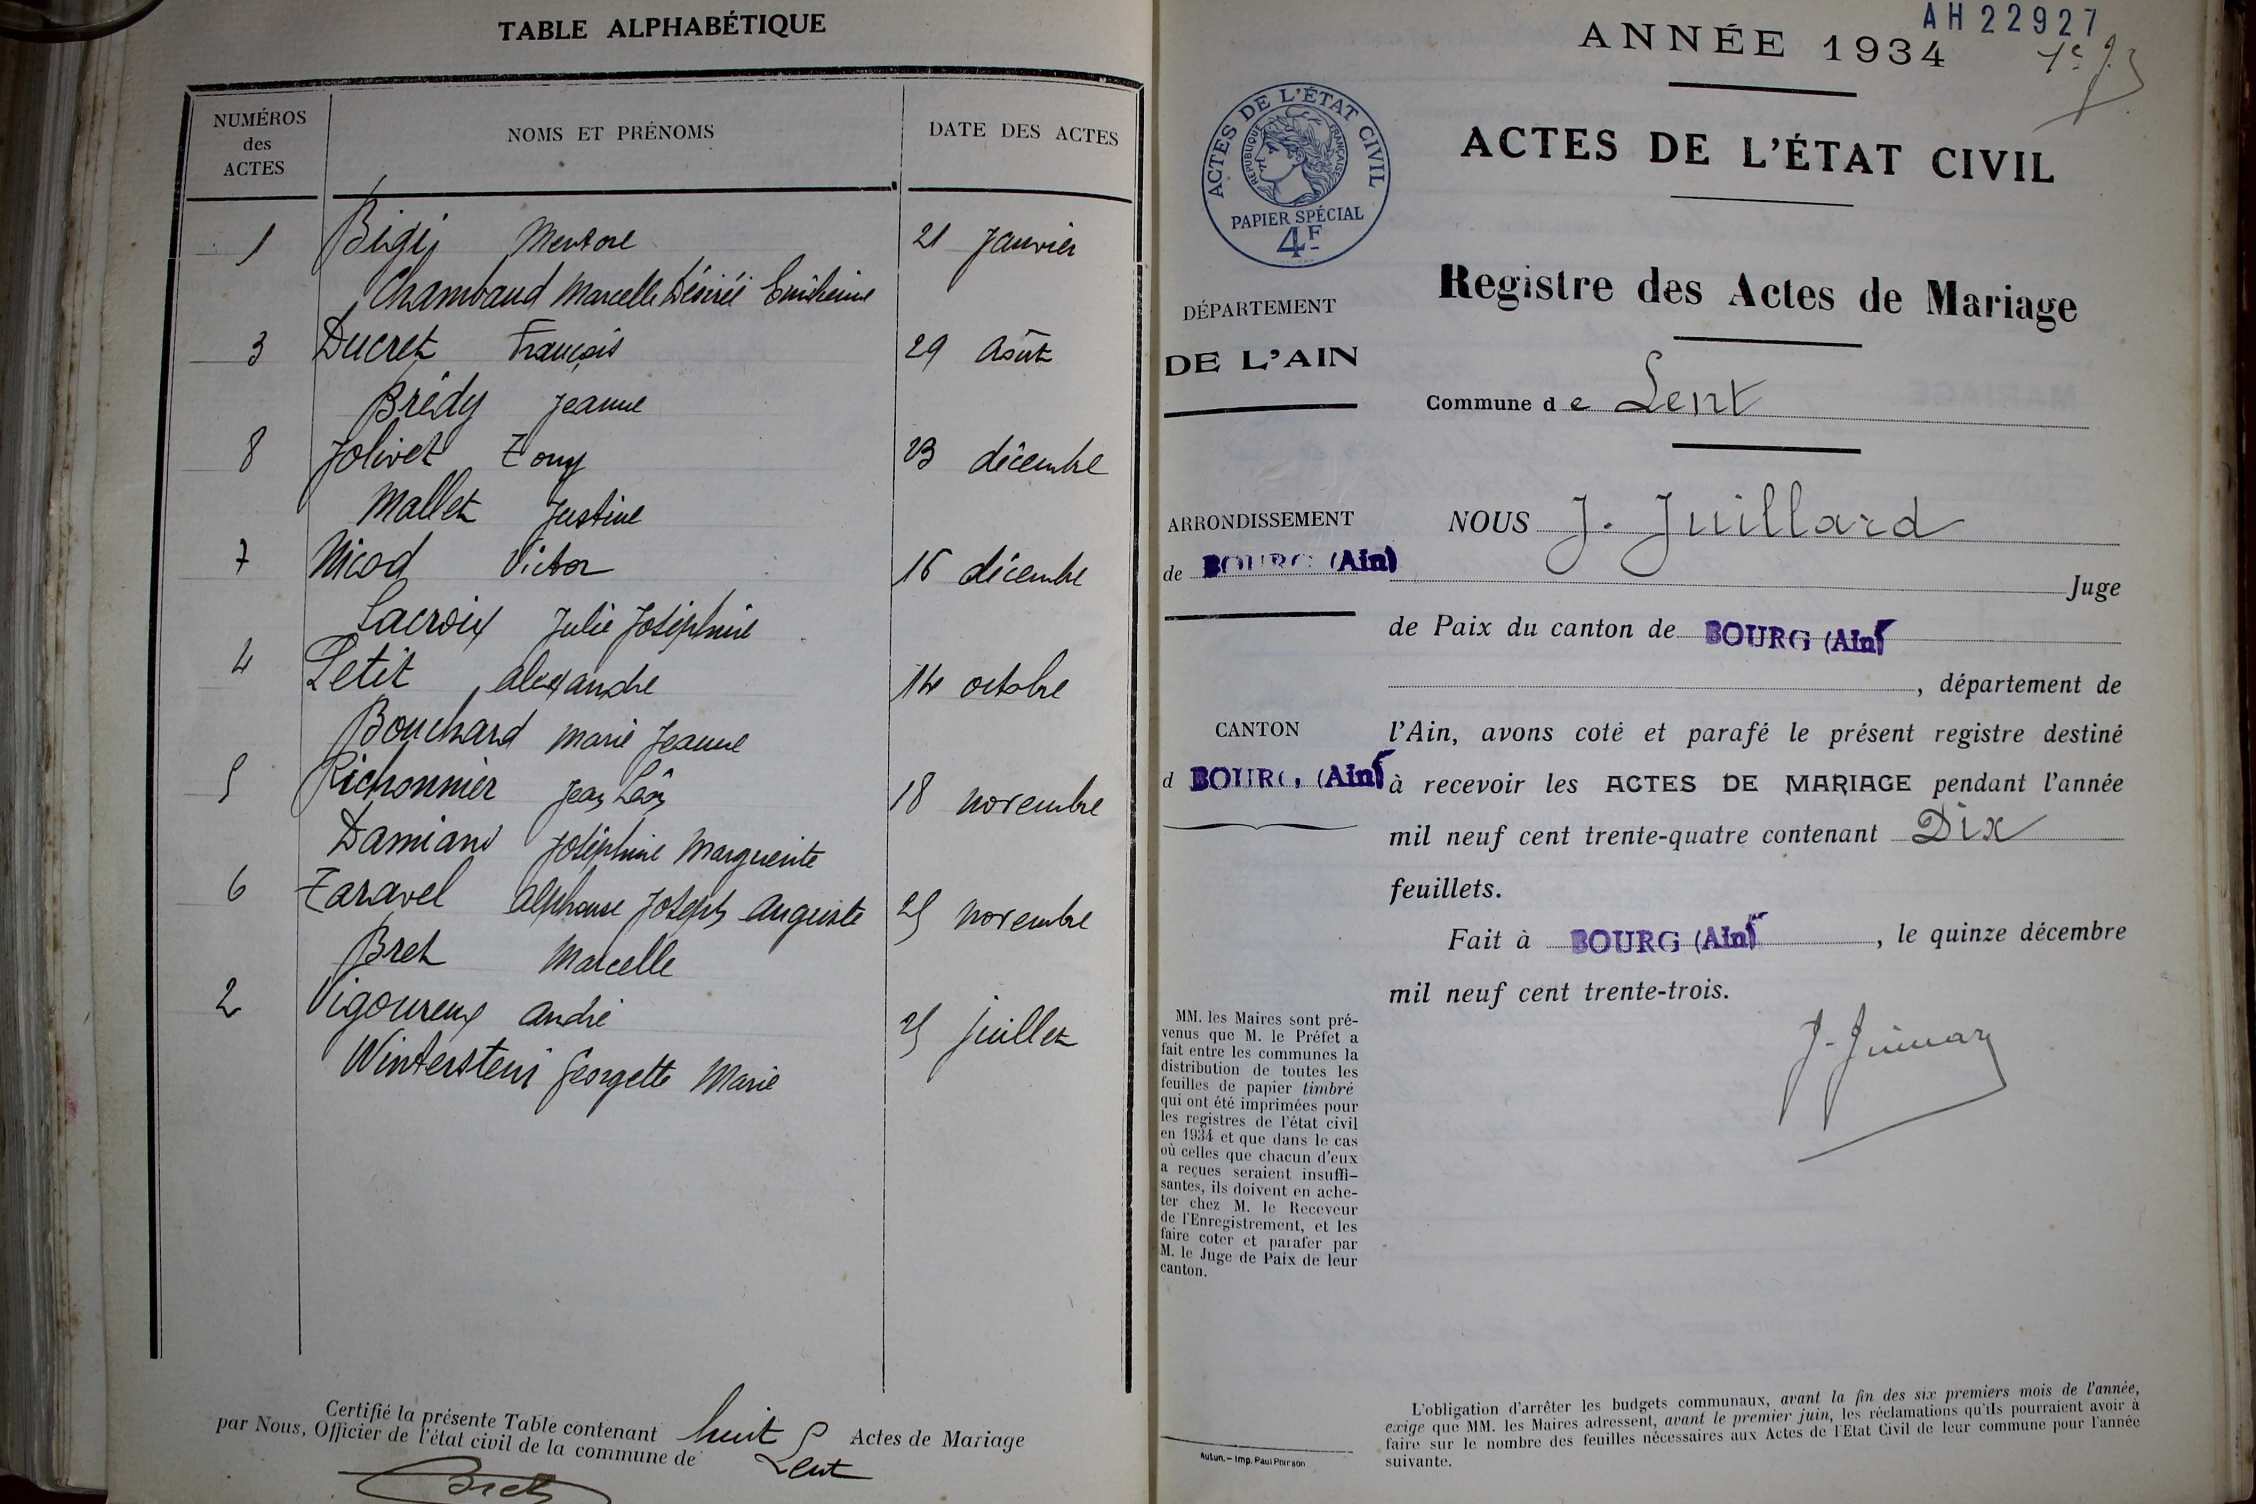 TABLE ALPHABÉTIQUE
NUMÉROS
des
ACTES
NOMS ET PRÉNOMS
DATE DES ACTES
1 Bigi 21 Janvier
Chambaud Marcelle Désirée
3 Ducret François 29 Août
Brédy Jeanne
8 Jolivet Tony 23 décembre
Mallet Justine
7 Nicod Victor 16 décembre
Lacroix Julie Joséphine
4 Petit Alexandre 14 octobre
Bouchard Marie Jeanne
5 Richonnier Jean Léon 18 novembre
Damians Joséphine Marguerite
6 Taravel Alphonse Joseph Auguste 25 novembre
Bret Marcelle
2 Vigoureux André 25 Juillet
Winterstein Georgette Marie
Certifié la présente Table contenant huit Actes de Mariage
par Nous, Officier de l'état civil de la commune de Lent
Bret
AH22927
ANNÉE 1934
ACTES DE L'ÉTAT CIVIL
RÉPUBLIQUE FRANÇAISE
PAPIER SPÉCIAL
4F
ACTES DE L'ÉTAT CIVIL
Registre des Actes de Mariage
DÉPARTEMENT
DE L'AIN
Commune de Lent
ARRONDISSEMENT
de BOURG (Ain)
CANTON
d BOURG, (Ain)
NOUS J. Juillard
Juge
de Paix du canton de BOURG (Ain)
, département de
l'Ain, avons coté et parafé le présent registre destiné
à recevoir les ACTES DE MARIAGE pendant l'année
mil neuf cent trente-quatre contenant Dix
feuillets.
Fait à BOURG (Ain), le quinze décembre
mil neuf cent trente-trois.
MM. les Maires sont pré-
venus que M. le Préfet a
fait entre les communes la
distribution de toutes les
feuilles de papier timbré
qui ont été imprimées pour
les registres de l'état civil
en 1934 et que dans le cas
où celles que chacun d'eux
a reçues seraient insuffi-
santes, ils doivent en ache-
ter chez M. le Receveur
de l'Enregistrement, et les
faire coter et parafer par
M. le Juge de Paix de leur
canton.
Autun. – Imp. Paul Poirson
L'obligation d'arrêter les budgets communaux, avant la fin des six premiers mois de l'année,
exige que MM. les Maires adressent, avant le premier juin, les réclamations qu'ils pourraient avoir à
faire sur le nombre des feuilles nécessaires aux Actes de l'État Civil de leur commune pour l'année
suivante.